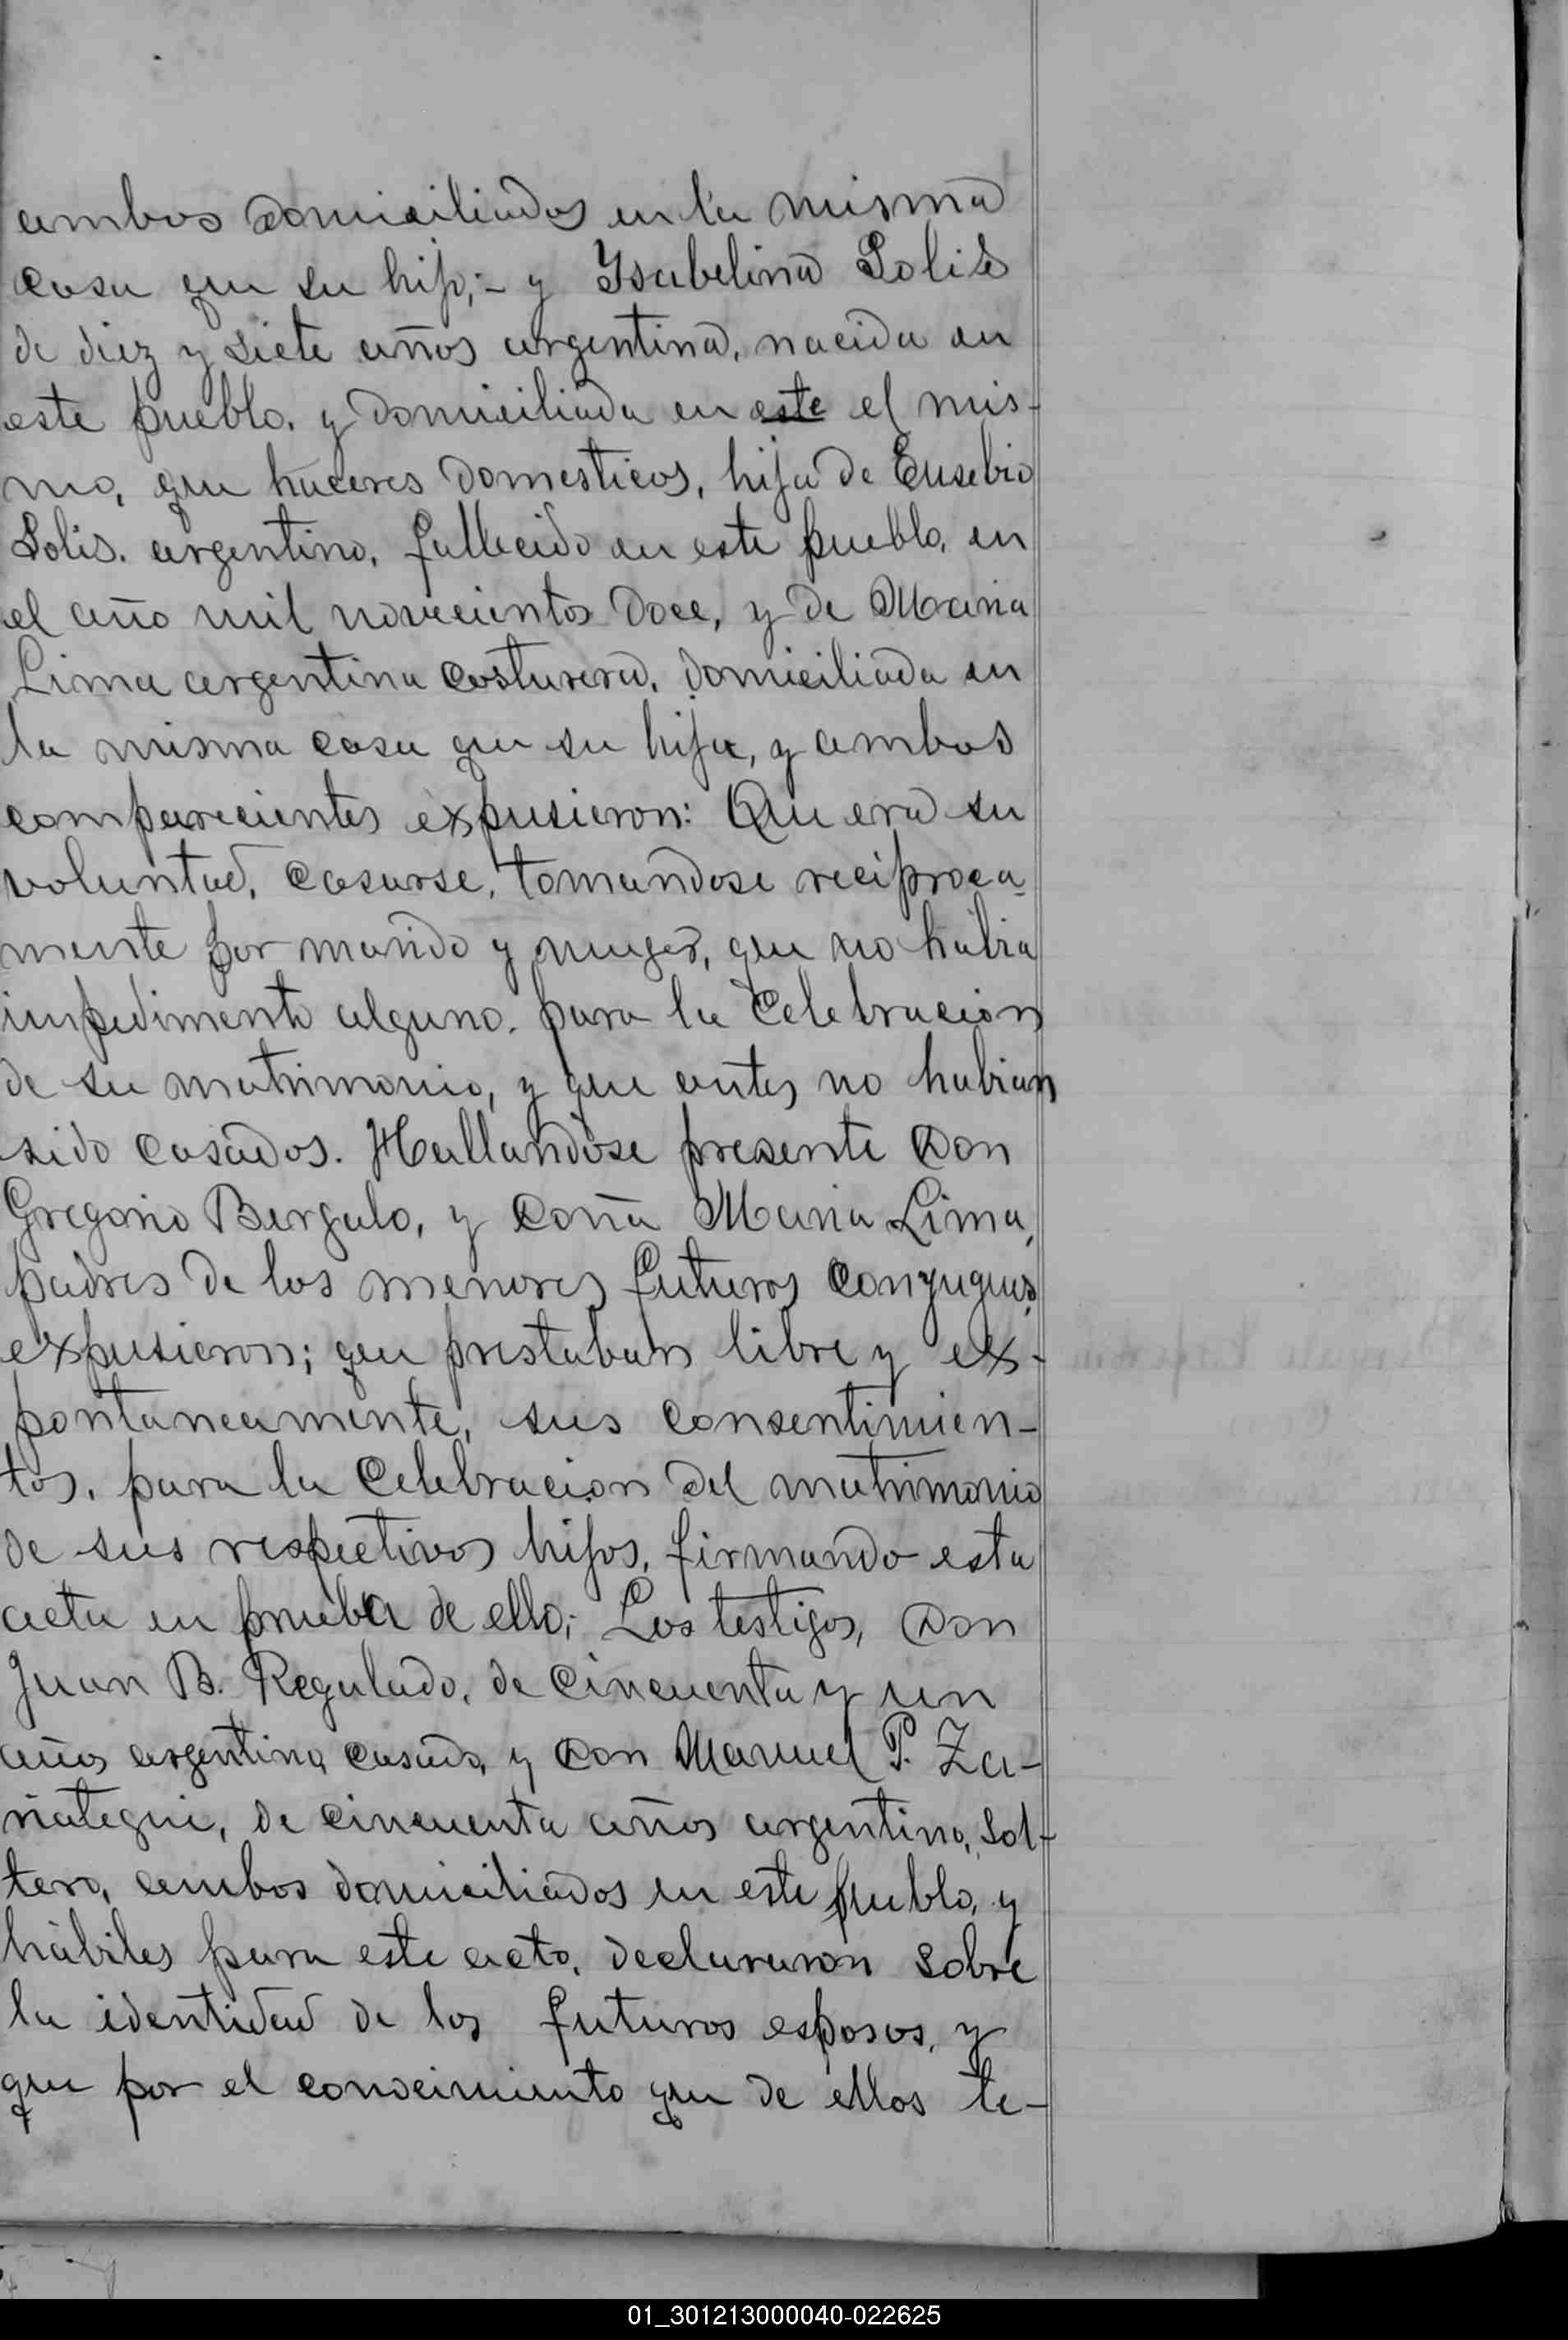 ambos domiciliados en la misma
casa que su hijo;- y Ysabelina Solis
de diez y siete años argentina, nacida en
este pueblo, y domiciliada en este el mis-
mo, que haceres domesticos, hija de Eusebio
Solis, argentino, fallecido en este pueblo, en
el año mil novecientos doce, y de Maria
Lima argentina costurera, domiciliada en
la misma casa que su hija, y ambos
comparecientes expusieron: Que era su
voluntad, casarse, tomandose reciproca-
mente por marido y muger, que no habia
impedimento alguno, para la celebracion
de su matrimonio, y que antes no habian
sido casados. Hallandose presente Don
Gregorio Bergalo, y Doña Maria Lima,
padres de los menores futuros conyugues,
expusieron; que prestaban libre y ex-
pontaneamente, sus consentimien-
tos, para la celebracion del matrimonio
de sus respectivos hijos, firmando esta
acta en prueba de ello; Los testigos, Don
Juan B. Regulado, de cincuenta y un
años argentino, casado, y Don Manuel P. Za-
ñategui, de cincuenta años argentino, sol-
tero, ambos domiciliados en este pueblo, y
hábiles para este acto, declararon sobre
la identidad de los futuros esposos, y
que por el conocimiento que de ellos te-
01_301213000040-022625